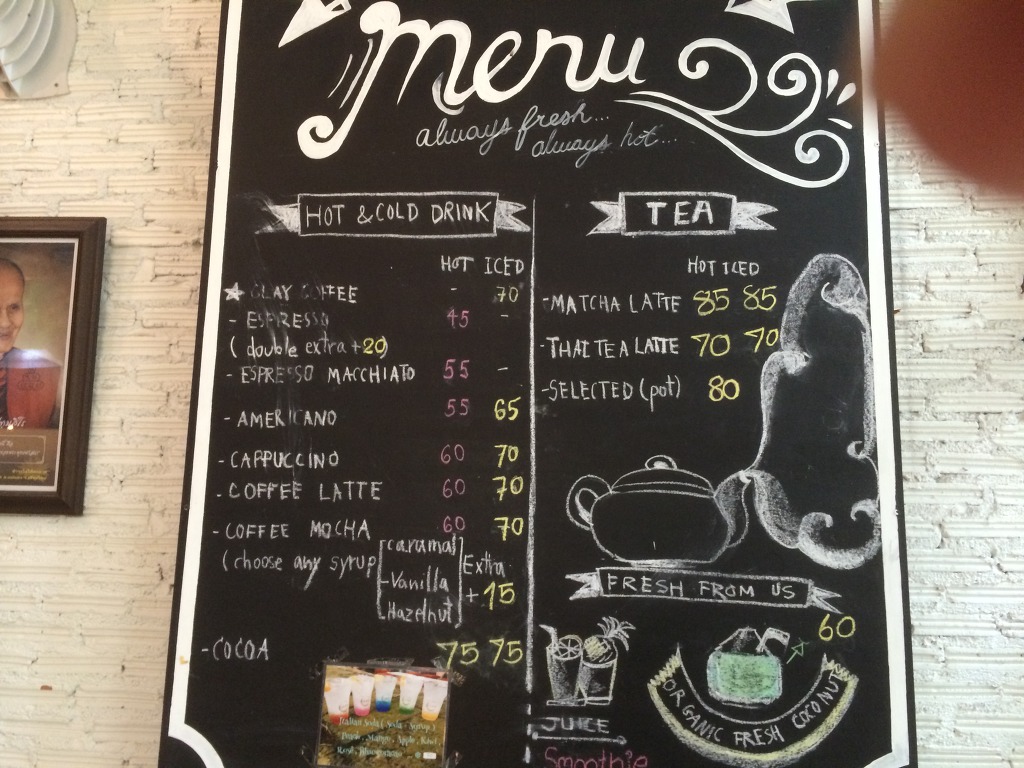 menu
always fresh...
always hot...
HOT & COLD DRINK
HOT ICED
CLAY COFFEE - 70
- ESPRESSO 45 -
( double extra +20)
- ESPRESSO MACCHIATO 55 -
- AMERICANO 55 65
- CAPPUCCINO 60 70
- COFFEE LATTE 60 70
- COFFEE MOCHA 60 70
(choose any syrup
caramal
-Vanilla
Hazelnut
Extra
+15
- COCOA 75 75
Italian Soda ( Soda + Syrup )
Mango, Apple, Kiwi,
TEA
HOT ICED
-MATCHA LATTE 85 85
-THAI TEA LATTE 70 70
-SELECTED (pot) 80
FRESH FROM US
60
JUICE
Smoothie
ORGANIC FRESH COCONUT